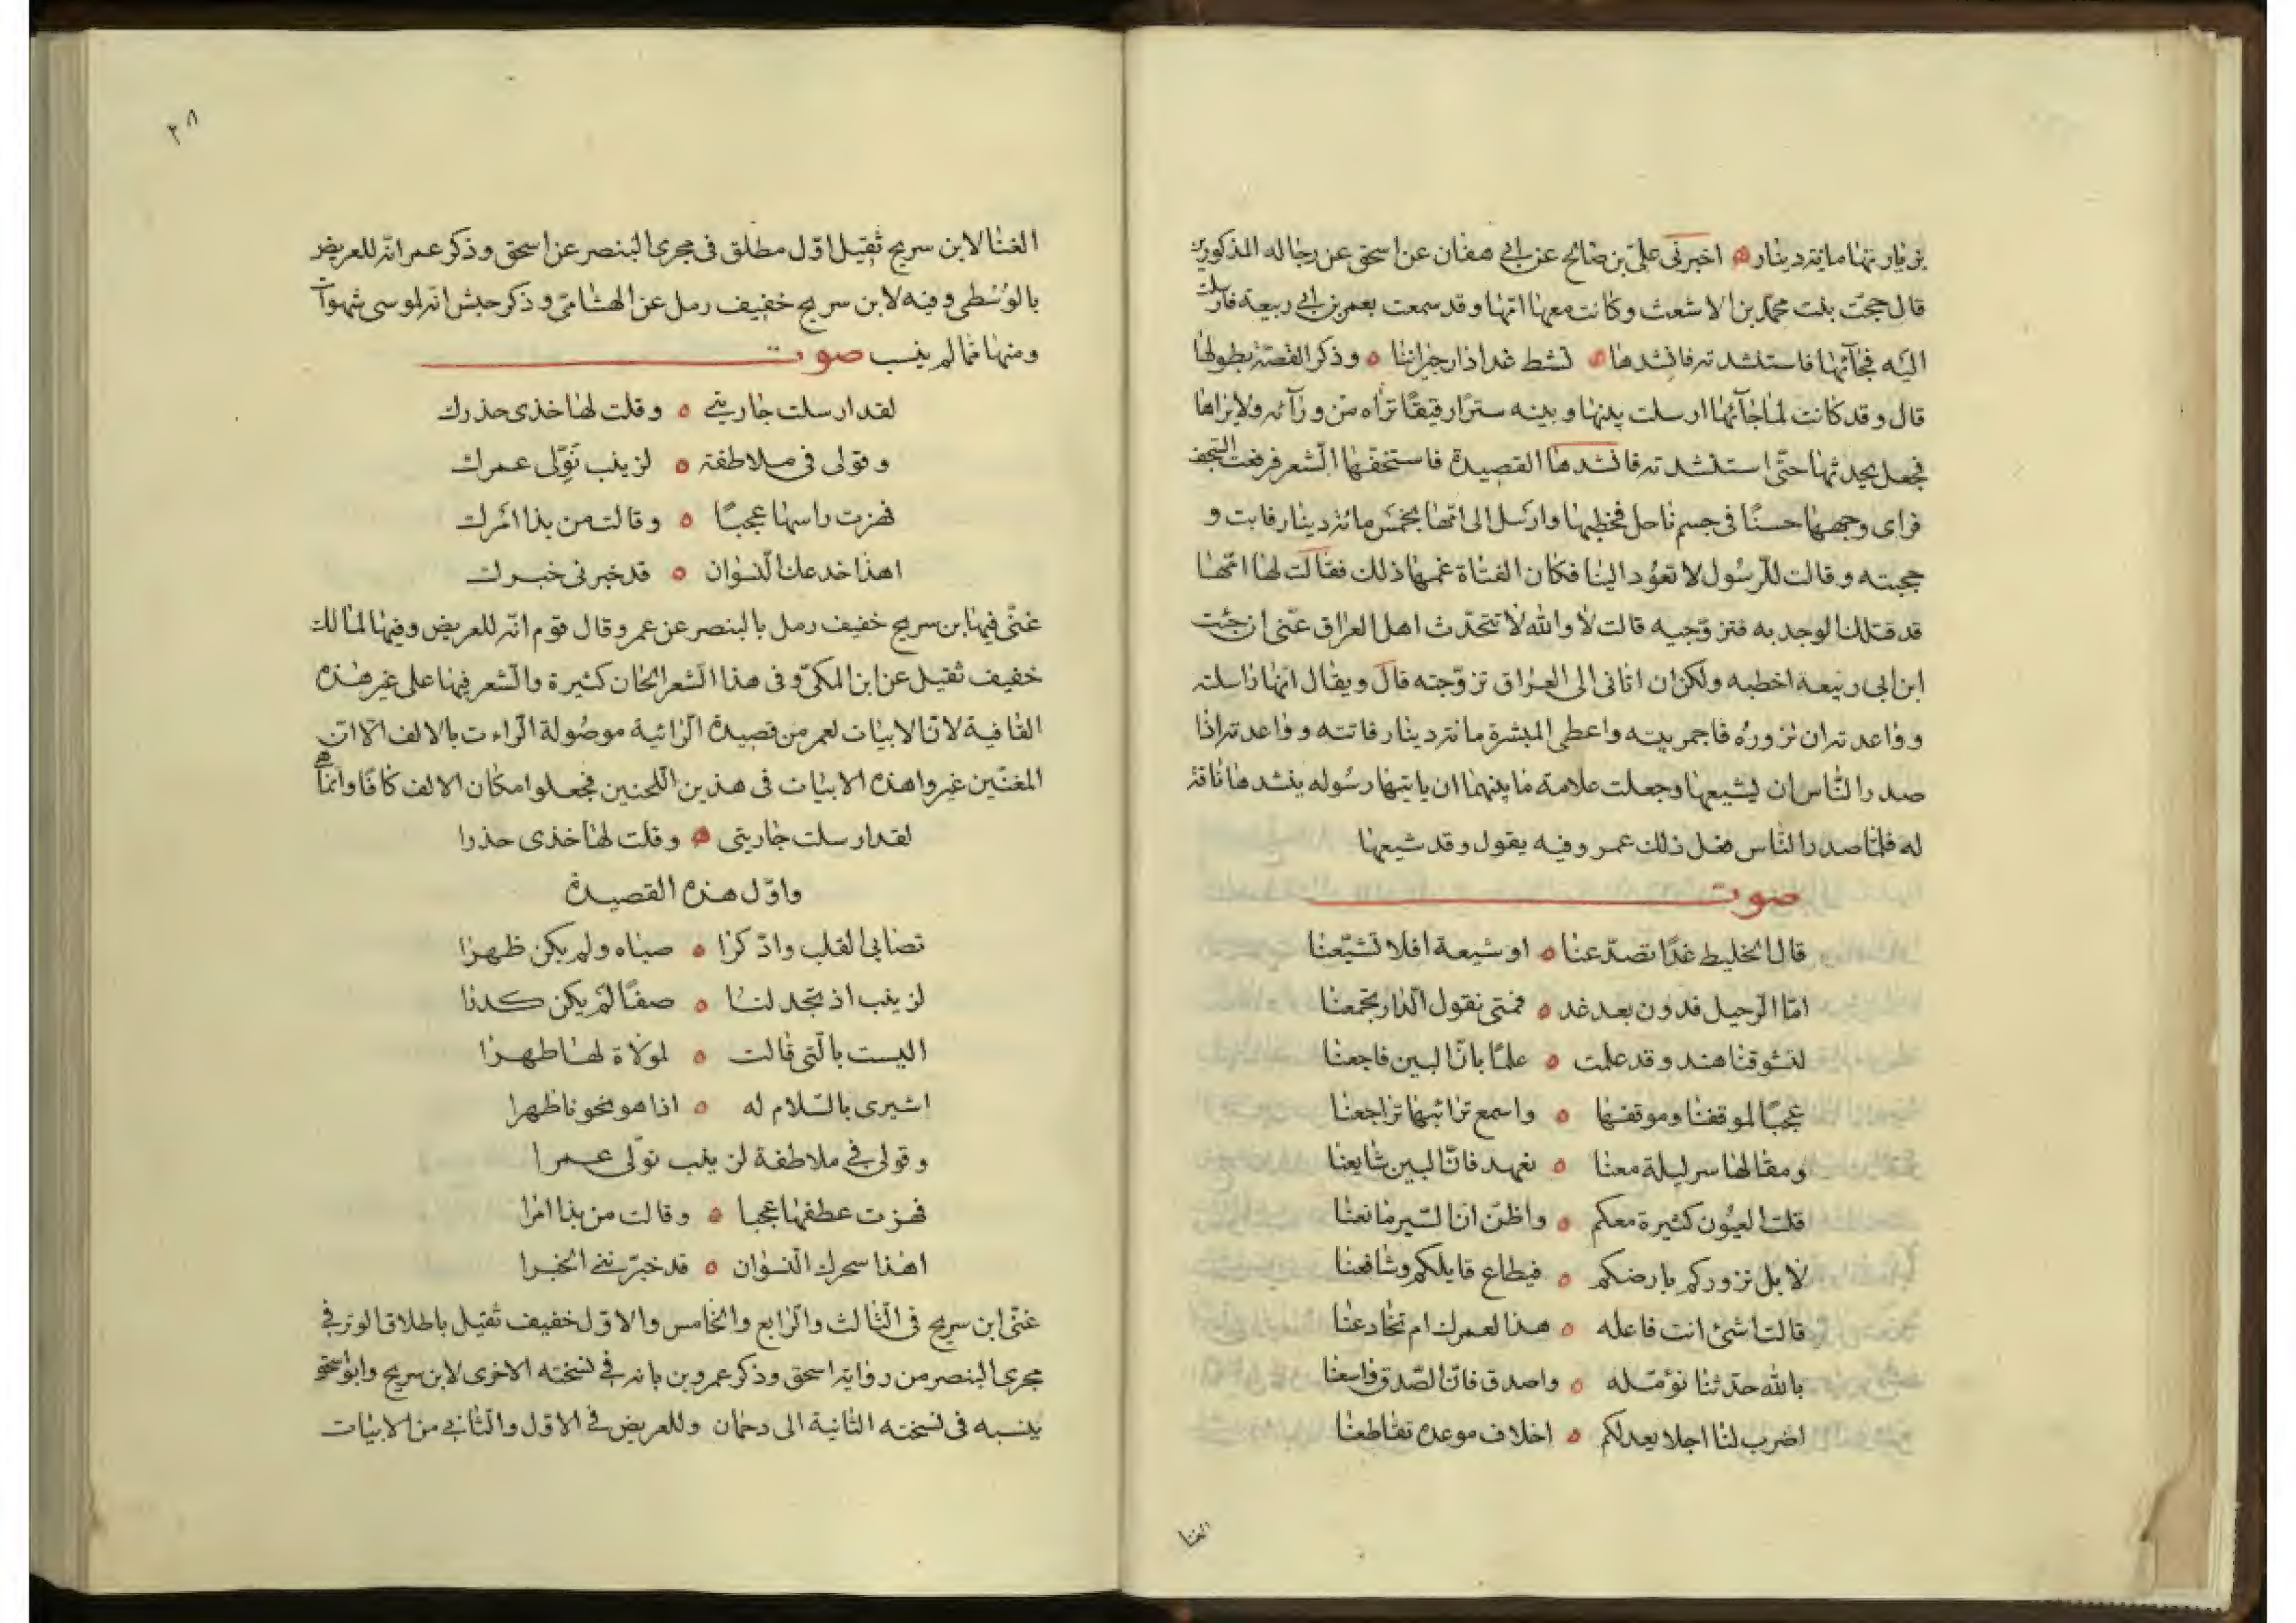 بزيارتها مائة دينار ه اخبرنى على بن صالح عن ابى هفان عن اسحق عن رجاله المذكورين
قال حجت بنت محمد بن الاشعث وكانت معها امها وقد سمعت بعمر بن ابى ربيعة فارسلت
اليه فجآئها فاستنشدته فانشدها ه تشط غدا دار جيراننا ه وذكر القصة بطولها
قال وقد كانت لما جآئها ارسلت بينها وبينه سترًا رقيقًا تراه من ورآئه ولا يراها
فجعل يحدثها حتى استنشدته فانشدها القصيدة فاستخفها الشعر فرفعت السجف
فراى وجهها حسنًا فى جسم ناحل فخطبها وارسل الى امها بخمس مائة دينار فابت و
حجبته وقالت للرسول لا تعود الينا فكان الفتاة غمها ذلك فقالت لها امها
قد قتلك الوجد به فتزوجيه قالت لا والله لا تتحدث اهل العراق عنى ان جئت
ابن ابى ربيعة اخطبه ولكن ان اتانى الى العراق تزوجته قال ويقال انها راسلته
وواعدته ان تزوره فاجمر بيته واعطى المبشرة مائة دينار فاتته وواعدته اذا
صدر الناس ان يشيعها وجعلت علامة ما بينهما ان ياتيها رسوله ينشدها ناقة
له فلما صدر الناس فعل ذلك عمر وفيه يقول وقد شيعها
صوت
قال الخليط غدًا تصدعنا ه او شيعة افلا تشيعنا
اما الرحيل فدون بعد غد ه فمتى نقول الدار تجمعنا
لتشوقنا هند وقد علمت ه علمًا بان البين فاجعنا
عجبًا لموقفنا وموقفها ه واسمع ترائبها تراجعنا
ومقالها سر ليلة معنا ه نعهد فان البين شايعنا
قلت العيون كثيرة معكم ه واظن ان السير مانعنا
لا بل نزوركم بارضكم ه فيطاع قايلكم وشافعنا
قالت اشئ انت فاعله ه هذا لعمرك ام تخادعنا
بالله حدثنا نؤمله ه واصدق فان الصدق واسعنا
اضرب لنا اجلا يعدلكم ه اخلاف موعده تقاطعنا
الغنا
٣٨
الغنا لابن سريج ثقيل اول مطلق فى مجرى البنصر عن اسحق وذكر عمر انه للغريض
بالوسطى وفيه لابن سريج خفيف رمل عن الهشامى وذكر حبش انه لموسى شهوات
ومنها مما لم ينسب صوت
لقد ارسلت جاريتى ه وقلت لها خذى حذرك
وقولى فى ملاطفة ه لزينب نولى عمرك
فهزت راسها عجبًا ه وقالت من بذا امرك
اهذا خدعك النسوان ه قد خبرنى خبرك
غنى فيها ابن سريج خفيف رمل بالبنصر عن عمر وقال قوم انه للغريض وفيها لمالك
خفيف ثقيل عن ابن المكى وفى هذا الشعر الحان كثيرة والشعر فيها على غير هذه
القافية لان الابيات لعمر من قصيدة الرائية موصولة الراءت بالالف الا ان
المغنين غيروا هذه الابيات فى هذين اللحنين فجعلوا مكان الالف كافًا وانما هو
لقد ارسلت جاريتى ه وقلت لها خذى حذرا
واول هذه القصيدة
تصابى القلب وادكرا ه صباه ولم يكن ظهرا
لزينب اذ تجد لنا ه صفًا لم يكن كدرا
اليست بالتى قالت ه لمولاة لها ظهرا
اشيرى بالسلام له ه اذا هو نحونا ظهرا
وقولى فى ملاطفة لزينب نولى عمرا
فهزت عطفها عجبا ه وقالت من بذا امرا
اهذا سحرك النسوان ه قد خبرننى الخبرا
غنى ابن سريج فى الثالث والرابع والخامس والاول خفيف ثقيل باطلاق الوتر فى
مجرى البنصر من رواية اسحق وذكر عمرو بن بانه فى نسخته الاخرى لابن سريج وابو اسحق
ينسبه فى نسخته الثانية الى دحمان وللغريض فى الاول والثانى من الابيات